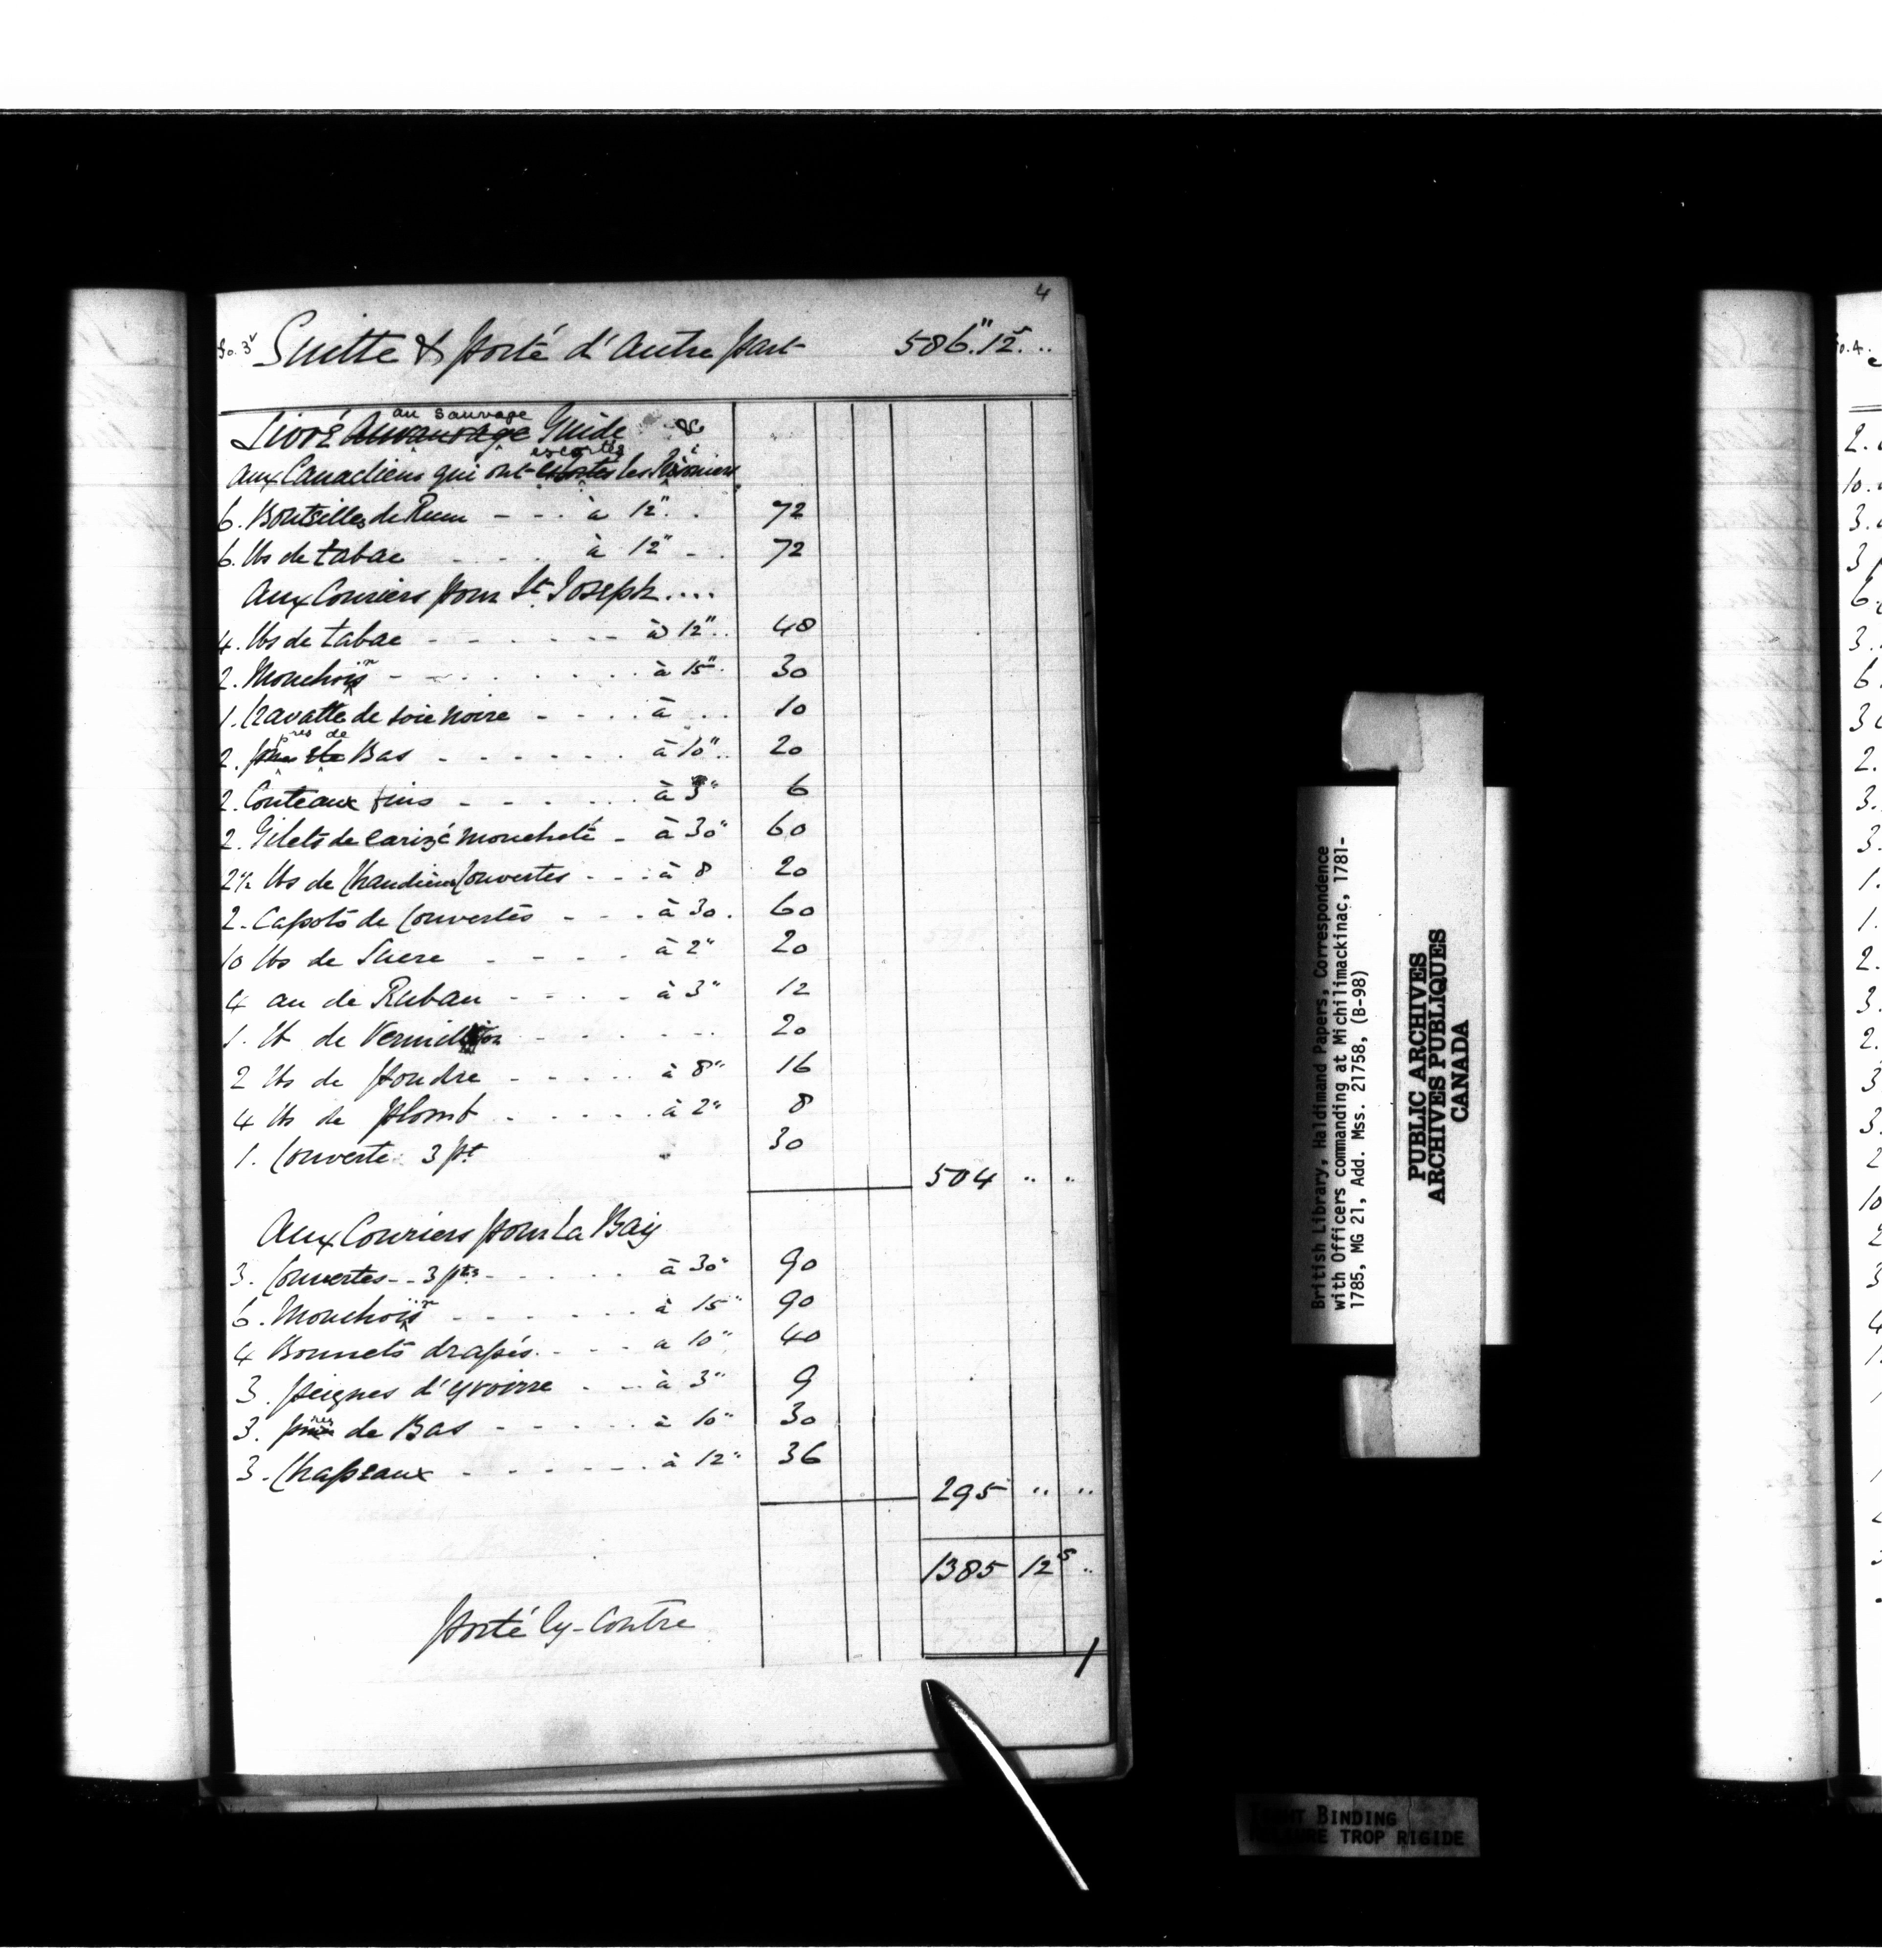 4
fo. 3v Suitte & porté d'autre part 586".12s. ..
Livré au sauvage Guide &
aux Canadiens qui ont escortés les Prisoniers
6. Bouteilles de Rum - - . à 12". . 72
6. lbs de tabac - - . . à 12" - . 72
Aux Couriers pour St. Joseph ....
4. lbs de tabac - - . . . - - à 12".. 48
2. Mouchoirs - - . . . . . . à 15". 30
1. Cravatte de soie noire - - . . à . . 10
2. pres de Bas - - - - - . à 10".. 20
2. Couteaux fins - - . - . . à 3" 6
2. Gilets de carizé moucheté - à 30" 60
2½ lbs de Chaudieres Couvertes - - . à 8 20
2. Capots de Couvertes - - . à 30. 60
10 lbs de Sucre - - - - à 2" 20
4 au de Ruban - - . - à 3" 12
1. lb de Vermillion - - - . . -. 20
2 lbs de poudre - - - . . à 8" 16
4 lbs de plomb . - . . . . à 2" 8
1. Couverte 3 pt 30
504 .. ..
Aux Couriers pour La Baiy
3. Couvertes - - 3 pts - . . . . à 30" 90
6. Mouchoirs - - . - . . . à 15" 90
4 Bonnets drapés. - - . a 10" 40
3. peignes d'yvoirre . - - à 3" 9
3. pres de Bas - - - . . . à 10" 30
3. Chapeaux - - - . - - . à 12" 36
295 .. ..
1385 12s ..
porté Cy-Contre
British Library, Haldimand Papers, Correspondence
with Officers commanding at Michilimackinac, 1781-
1785, MG 21, Add. Mss. 21758, (B-98)
PUBLIC ARCHIVES
ARCHIVES PUBLIQUES
CANADA
BINDING
TROP RIGIDE
fo. 4.
2.
10.
3.
3
6.
3.
6.
3
2.
3.
3.
1.
1.
2.
3.
2.
3
3.
2
10
2
3
4